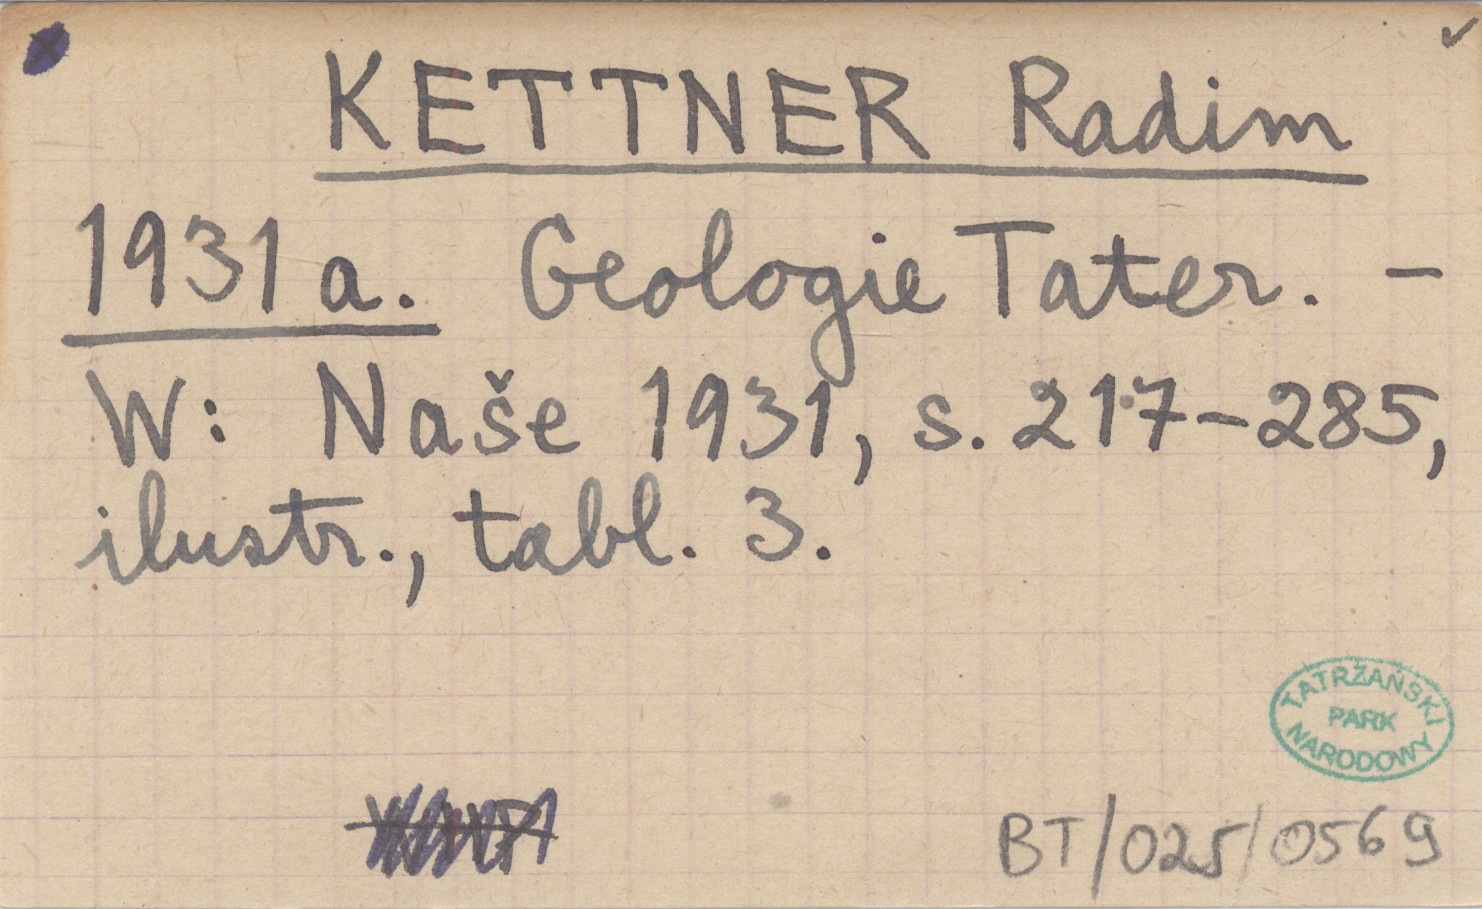 KETTNER Radim
1931a. Geologie Tater. –
W: Naše 1931, s. 217–285,
ilustr., tabl. 3.
TATRZAŃSKI
PARK
NARODOWY
BT/025/0569